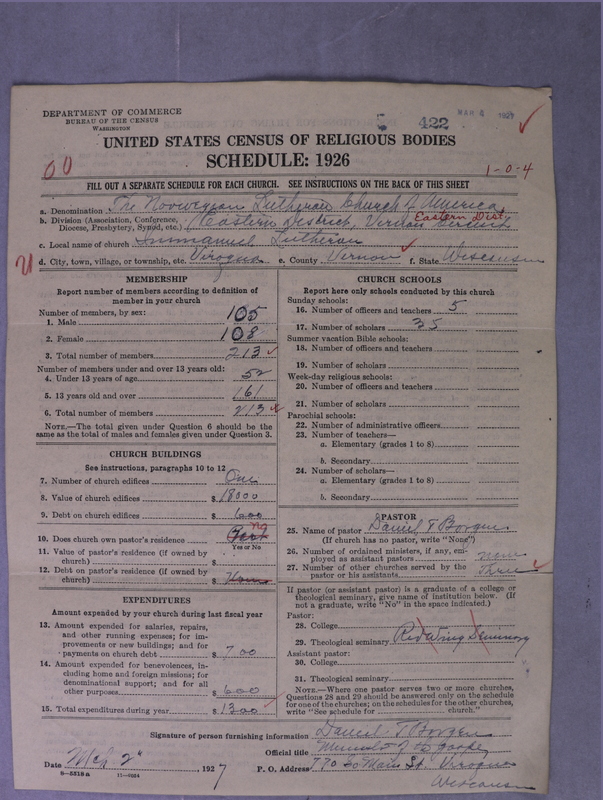 DEPARTMENT OF COMMERCE
BUREAU OF THE CENSUS
WASHINGTON
5 422 MAR 4 1927
UNITED STATES CENSUS OF RELIGIOUS BODIES
SCHEDULE: 1926
1-0-4
FILL OUT A SEPARATE SCHEDULE FOR EACH CHURCH. SEE INSTRUCTIONS ON THE BACK OF THIS SHEET
a. Denomination The Norwegian Lutheran Church of America
b. Division (Association, Conference, Diocese, Presbytery, Synod, etc.) (Eastern District, Vernon Circuit Eastern Dist.
c. Local name of church Immanuel Lutheran
d. City, town, village, or township, etc. Viroqua e. County Vernon f. State Wisconsin
MEMBERSHIP
Report number of members according to definition of member in your church
Number of members, by sex:
1. Male 105
2. Female 108
3. Total number of members 213
Number of members under and over 13 years old:
4. Under 13 years of age 52
5. 13 years old and over 161
6. Total number of members 213
NOTE.—The total given under Question 6 should be the same as the total of males and females given under Question 3.
CHURCH BUILDINGS
See instructions, paragraphs 10 to 12
7. Number of church edifices One
8. Value of church edifices $ 18000
9. Debt on church edifices $ 600
10. Does church own pastor's residence no
Yes or No
11. Value of pastor's residence (if owned by church) $
12. Debt on pastor's residence (if owned by church) $
EXPENDITURES
Amount expended by your church during last fiscal year
13. Amount expended for salaries, repairs, and other running expenses; for improvements or new buildings; and for payments on church debt $ 700
14. Amount expended for benevolences, including home and foreign missions; for denominational support; and for all other purposes $ 600
15. Total expenditures during year $ 1300
CHURCH SCHOOLS
Report here only schools conducted by this church
Sunday schools:
16. Number of officers and teachers 5
17. Number of scholars 35
Summer vacation Bible schools:
18. Number of officers and teachers
19. Number of scholars
Week-day religious schools:
20. Number of officers and teachers
21. Number of scholars
Parochial schools:
22. Number of administrative officers
23. Number of teachers—
a. Elementary (grades 1 to 8)
b. Secondary
24. Number of scholars—
a. Elementary (grades 1 to 8)
b. Secondary
PASTOR
25. Name of pastor Daniel T Borgen
(If church has no pastor, write "None")
26. Number of ordained ministers, if any, employed as assistant pastors none
27. Number of other churches served by the pastor or his assistants Three
If pastor (or assistant pastor) is a graduate of a college or theological seminary, give name of institution below. (If not a graduate, write "No" in the space indicated.)
Pastor:
28. College
29. Theological seminary Red Wing Seminary
Assistant pastor:
30. College
31. Theological seminary
NOTE.—Where one pastor serves two or more churches, Questions 28 and 29 should be answered only on the schedule for one of the churches; on the schedules for the other churches, write "See schedule for church."
Signature of person furnishing information Daniel T Borgen
Official title Minister of the Gospel
Date Mch 2", 1927 P. O. Address 770 So Main St. Viroqua
Wisconsin
8-5318a 11-9024